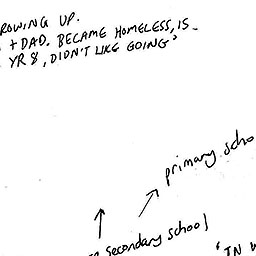 ROWING UP.
+ DAD. BECAME HOMELESS, IS
YR 8, DIDN'T LIKE GOING"
primary scho
secondary school
'IN